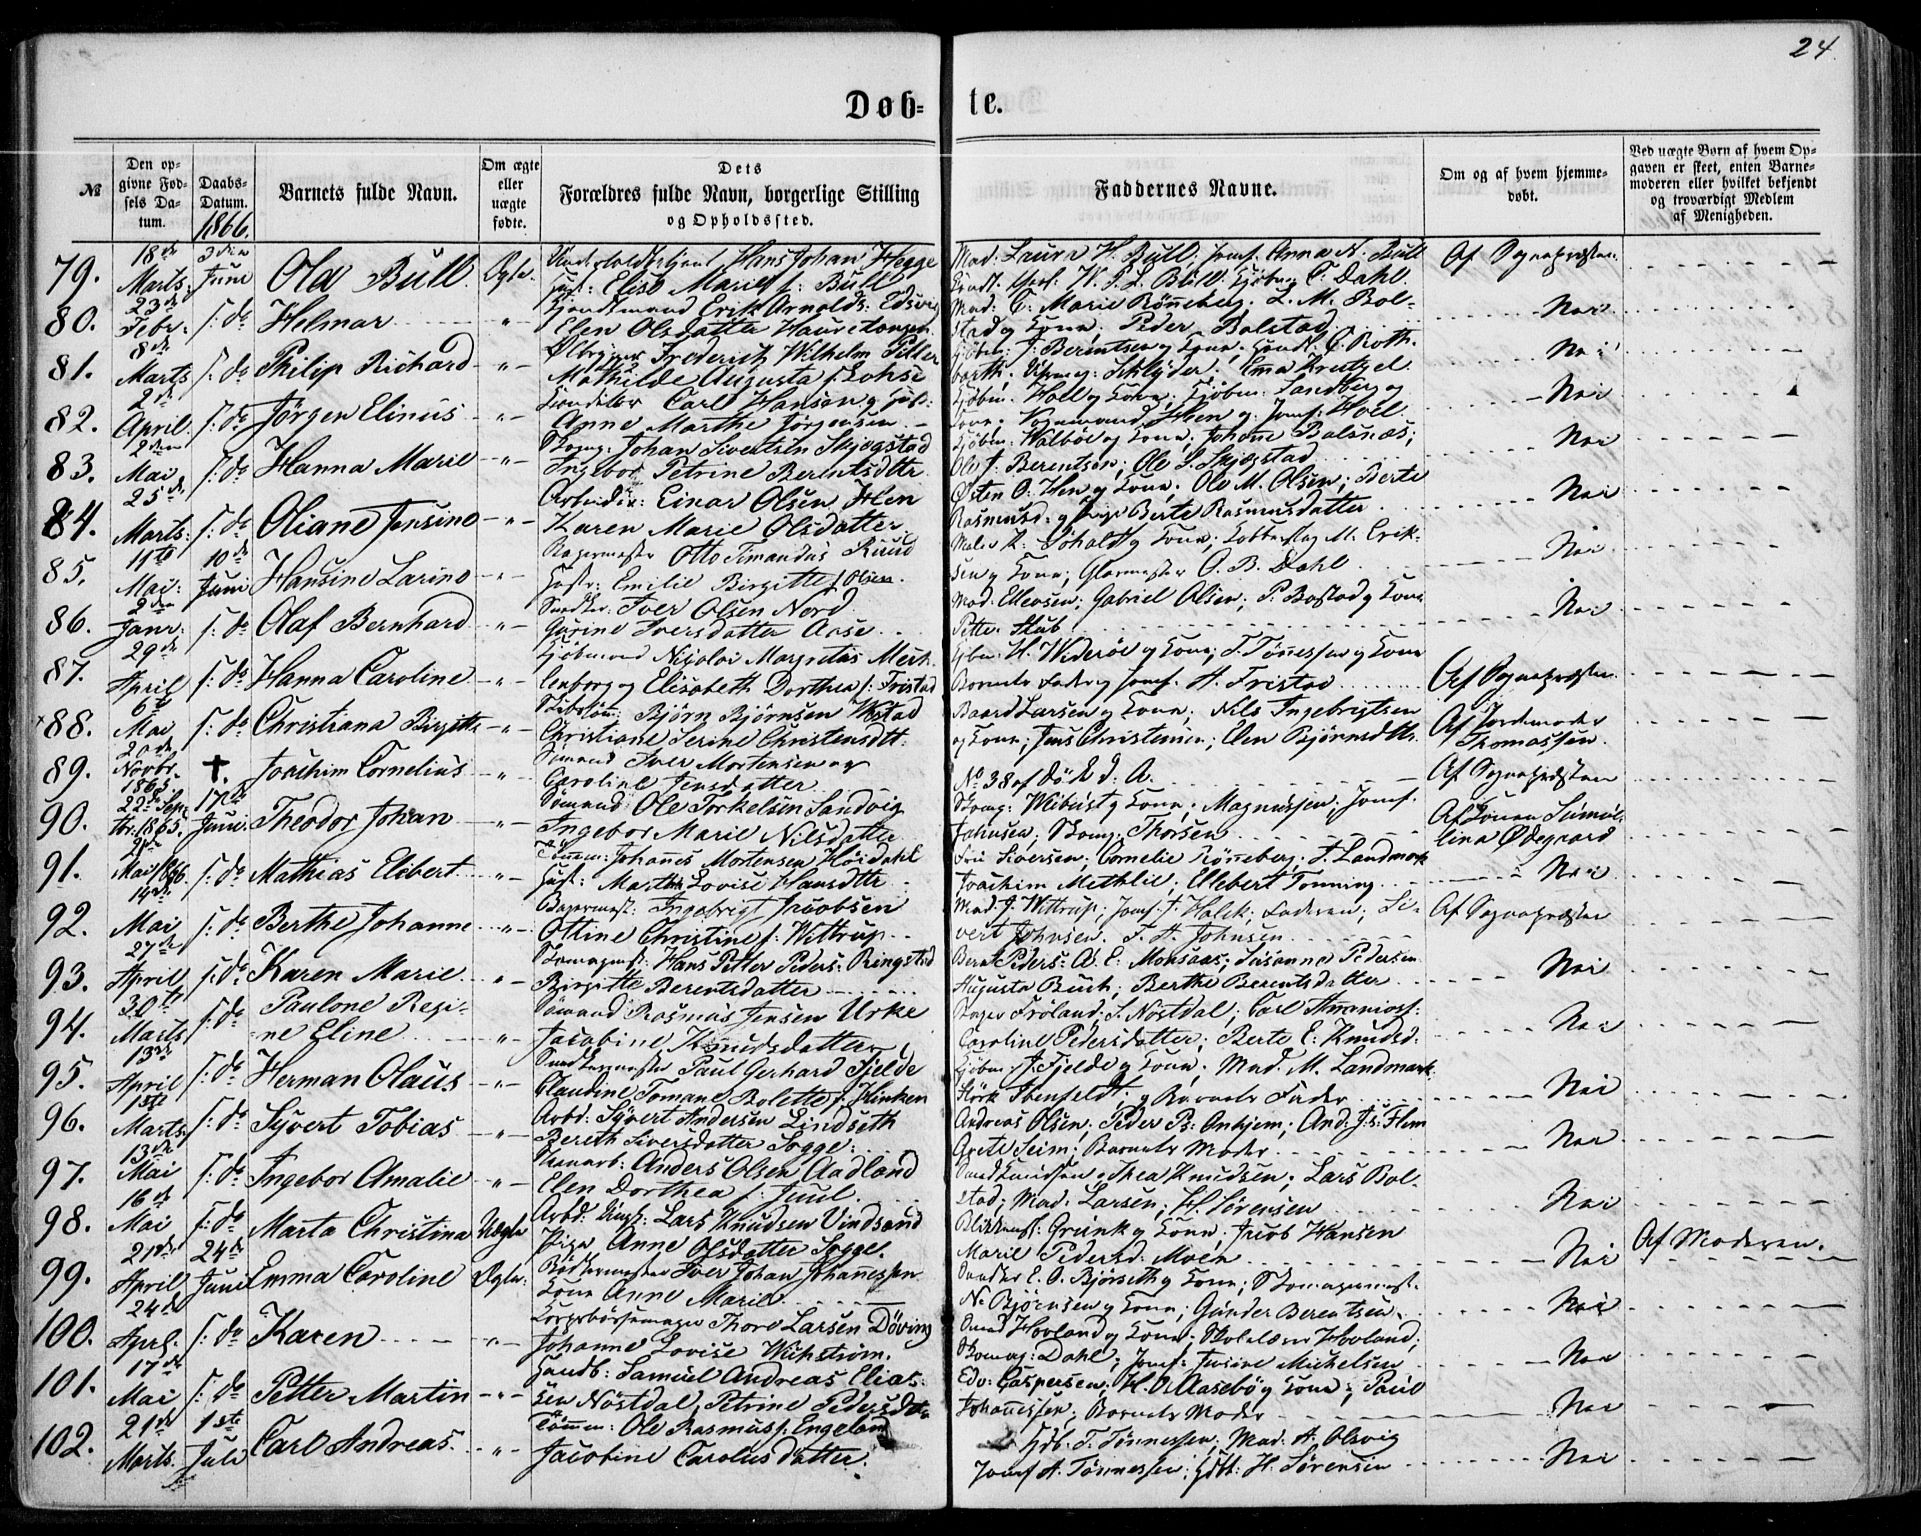 24
Døb-
te.
№
Den op-
givne Fød-
sels Da-
tum.
Daabs-
Datum.
1866.
Barnets fulde Navn.
Om ægte
eller
uægte
fødte.
Dets
Forældres fulde Navn, borgerlige Stilling
og Opholdssted.
Faddernes Navne.
Om og af hvem hjemme-
døbt.
Ved uægte Børn af hvem Op-
gaven er skeet, enten Barne-
moderen eller hvilket bekjendt
og troværdigt Medlem
af Menigheden.
79. 18de Marts 3die Juni Ola Bull Ægte. Hans Johan Hogge
Elise Marie f: Bull
Mad. Laura H. Bull. Jomf. Anna N. Bull
H. P. L. Büll. Kjøbm. C. Dahl.
Af Sognepræsten
80. 23de Febr. s: d. Helmar -"- Erik Arnolds: Edsvig
Elen Olsdatter
Mad. C. Marie Rønneberg. L. M. Bol-
stad og Kone; Peder Bolstad
Nei
81. 8de Marts s: d. Philip Richard -"- Ølbrygger Frederich Wilhelm Peller
Mathilde Augusta f: Lohse
J: Berentsen og Kone; C. Roth-
barth; Emma Kreutzel
Nei
82. 2de April s: d. Jørgen Elinus -"- Conditor Carl Hansen og
Anne Marthe Jørgensen
Kjøbm. Holl og Kone; Kjøbm. Sandberg og
Kone; Vognmand Hen og Jomf. Hoel.
Nei
83. 2den Mai s: d. Hanna Marie -"- Skomag: Johan Sivertsen Skjegstad
Ingebor Petrine Berentsdttr
Kjøbm. Walbøe og Kone; Johanne Balsnæs;
Ole J. Berentsen; Ole S. Skjegstad
Nei
84. 25de Marts: s: d. Oliane Jensine -"- Arbeider: Einar Olsen Hen
Karen Marie Olsdatter
Østen O. Hen og Kone; Ole M. Olsen; Berte
Rasmusd: og Pige Berte Rasmusdatter
Nei
85. 11te Mai: 10de Juni Hansine Larine -"- Bagermester Otto Timandus Ruud
Hustr: Emilie Birgitte f Olsen.
Maler K. Søholdt og Kone; M. Erik-
sen og Kone; Glarmester O. B. Dahl
Nei
86. 2den Janr: s: d. Olaf Bernhard -"- Snedker: Iver Olsen Nord
Gurine Iversdatter Aase
Mad. Ellevsen; Gabriel Olsen; P. Bostad og Kone
Petter Stub
Nei
87. 29de April s: d. Hanna Caroline -"- Kjøbmand Nicolai Margretus Meck-
lenborg og Elisabeth Dorthea f: Fristad
H. Widerøe og Kone; T. Tønnessen og Kone
Barnets Fader og Jomf. A. Fristad
Af Sognepræsten
×88. 6te Mai s: d. Christiana Birgitte -"- Bjørn Bjørnsen Westad
Christiane Serine Christensdtt:
Baard Larsen og Kone; Nils Ingebrigtsen
og Kone; Jens Christensen; Elen Bjørnsdttr
Af Jordmoder
Thomassen.
89. 20de Novbr. 1865 ✝. Joachim Cornelius " Sømand Iver Mortensen og
Caroline Jensdatter
No 38 af døde d: A.
Af Sognepræsten
90. 22de Sep-
tbr. 1865. 17de Juni. Theodor Johan -"- Sømand: Ole Torkelsen Sandvig
Ingebor Marie Nilsdatter
Skomg: Wibüst og Kone; Magnussen; Jomf.
Johnsen; Skomg: Thorsen
Af Konen Simü-
line Ødegaard
91. 21de Mai 1866. s: d. Mathias Elibert -"- Tømm: Johannes Mortensen Høidahl
Hust: Martha Lovise Hansdttr
Siversen; Cornelie Rønneberg; S. Landmark
Joachim Methlie; Ellebert Tonning
Nei
92. 14de Mai s: d. Berthe Johanne -"- Bagermest: Ingebrigt Jacobsen
Ottine Christine f: Wittrup
Mad. J. Wittrup; Jomf. J. Holck; Faderen; Si-
vert Johnsen. T. A. Johnsen
Af Sognepræsten
93. 27de April s: d. Karen Marie -"- Skomagermst: Hans Petter Peders: Ringstad
Birgitte Berentsdatter
Bernt Peders: A. E. Monsaas; Susanna Pedersen
Augusta Buch; Berthe Berentsdatter
Nei
94. 30te Marts s: d. Paulone Regi-
ne Eline " Sømand Rasmus Jensen Urke
Jacobine Knudsdatter
Frøland; S. Nøstdal; Carl Amanioss:
Caroline Pedersdatter; Berte E. Knudsd.
Nei
95. 13de April s: d. Herman Olaus -"- Snedkermester Paul Gerhard Fjelde
Claudine Tomane Bolette f: Hinken
Kjøbm: J. Fjelde og Kone; Mad. M. Landmark
Størk Ibenfeldt; og Barnets Fader
Nei
96. 1ste Marts. s: d. Syvert Tobias -"- Arbd: Syvert Andersen Lindseth
Bereth Siversdatter Sogge:
Andreas Olsen; Peder Ps: Onhjem; And: Js: Flem
Grete Seim; Barnets Moder
Nei
97. 13de Mai s: d. Ingebor Amalie -"- Anders Olsen Aadland
Elen Dorthea f: Juul.
Knudsen; Thea Knudsen; Lars Bol-
stad; Mad: Larsen; H. Sørensen
Nei
98. 16de Mai s: d. Marta Christina Uægte Arbd: Ungk: Lars Knudsen Vindsund
Pige Anne Olsdatter Sogge.
Blikkenst: Greink og Kone; Jacob Hansen
Marie Pedersd. Moen
Nei
Af Moderen.
99. 21de April 24de Juni Emma Caroline Ægte: Bødkermester Iver Johan Johannessen
Kone Anne Marie
Snedker E. O. Bjørseth og Kone; Skomagermst:
N. Bjørnsen og Kone; Günder Berentsen
Nei
100. 24de Aprl. s: d. Karen " Thore Larsen Døving
Johanne Lovise Wichstrøm.
Hovland og Kone; Skolelærer Hovland;
Skomag: Dahl; Jomf: Jensine Michelsen
Nei
101. 17de Mai s: d. Petter Martin -"- Handb: Samuel Andreas Elias-
sen Nøstdal, Petrine Pedersdtr
Edv: Caspersen; H. O. Aasebø og Kone; Paul
Johannessen; Barnets Moder
Nei
102. 21de Marts. 1ste Juli Carl Andreas -"- Tømm: Ole Rasmuss: Engeland
Jacobine Carolusdatter
T. Tønnessen; Mad: A. Olsvig
Jomf A. Tønnessen; H. Sørensen
Nei